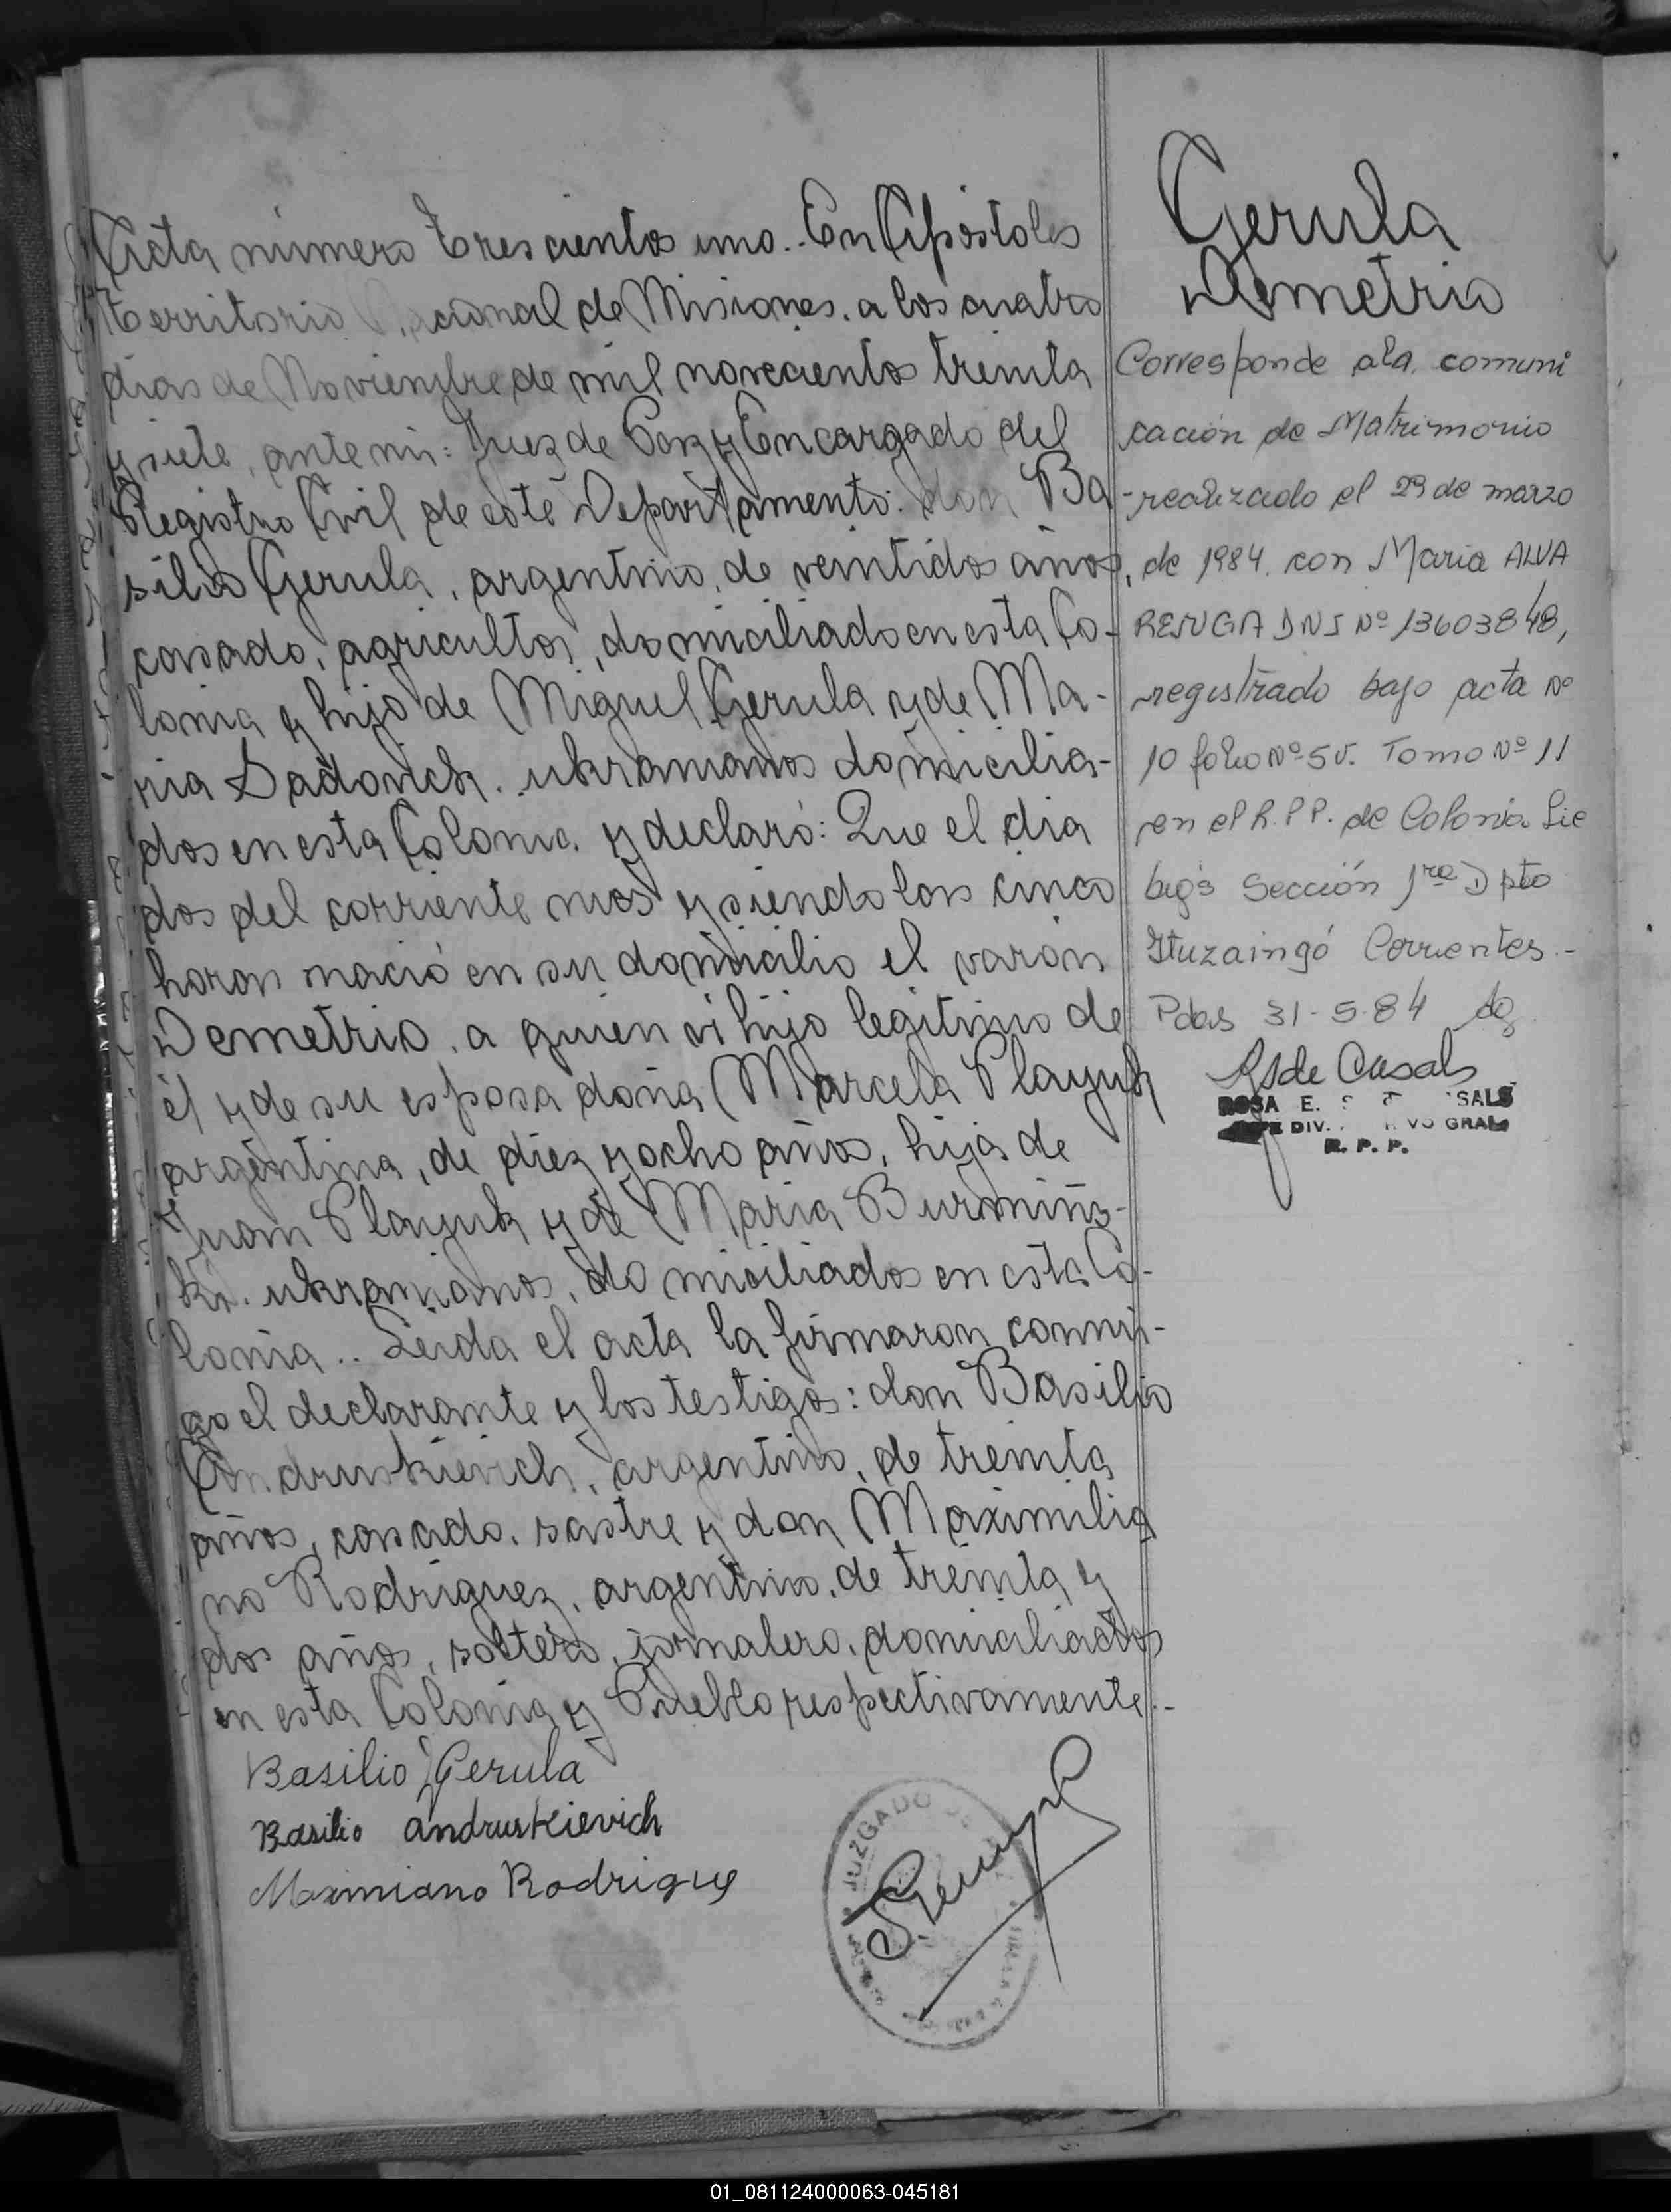 Acta número trescientos uno.. En Apóstoles
territorio Nacional de Misiones. a los cuatro
dias de Noviembre de mil novecientos treinta
y siete, ante mi: Juez de Paz y Encargado del
Registro Civil de este Departamento: don Ba-
silio Gerula, argentino, de veintidos años,
casado, agricultor, domiciliado en esta Co-
lonia y hijo de Miguel Gerula y de Ma-
ria Sadovick. ukranianos domicilia-
dos en esta Colonia. y declaró: Que el dia
dos del corriente mes y siendo las cinco
horas nació en su domicilio el varón
Demetrio. a quien vi hijo legitimo de
él y de su esposa doña Marcela Playuk
argentina, de diez y ocho años, hija de
Juan Playuk y de Maria Burmins-
ki. ukranianos, domiciliados en esta Co-
lonia.. Leida el acta la firmaron conmi-
go el declarante y los testigos: don Basilio
Andruskievich, argentino, de treinta
años, casado, sastre y don Maximilia
no Rodriguez, argentino, de treinta y
dos años, soltero, jornalero, domiciliados
en esta Colonia y Pueblo respectivamente.-
Basilio Gerula
Basilio Andruskievich
Maximiano Rodrigue
JUZGADO DE
Gerula
Demetrio
Corresponde a la comuni
cación de Matrimonio
realizado el 29 de marzo
de 1984. con Maria ALVA
RENGA DNI Nº 13603848,
registrado bajo acta Nº
10 folio Nº 5v. Tomo Nº 11
en el R.P.P. de Colonia Lie
big's Sección 1ra Dpto
Ituzaingó Corrientes.-
Pdas 31-5-84
RSde Casals
ROSA E. S SALS
DIV. VO GRAL
R. P. P.
01_081124000063-045181